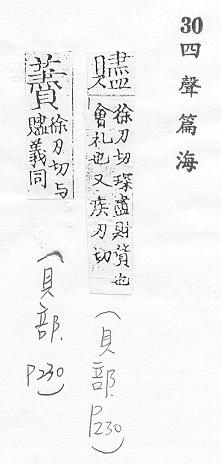 30 四聲篇海
贐 徐刃切琛盡財貨也
會礼也又疾刃切
(貝部. P230)
徐刃切与
贐義同
(貝部. P230)